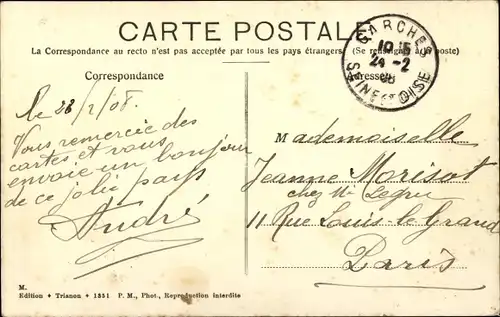 CARTE POSTALE
La Correspondance au recto n'est pas acceptée par tous les pays étrangers. (Se renseigner à la poste)
GARCHES
10 15
24 -2
08
SEINE ET OISE
Correspondance
Adresse
le 23/2/08.
Vous remercie des
cartes et vous
envoie un bonjour
de ce joli pays
André
Mademoiselle
Jeanne Morisot
chez Mr
11 Rue Louis le Grand
Paris
M.
Edition + Trianon + 1351 P. M., Phot., Reproduction interdite